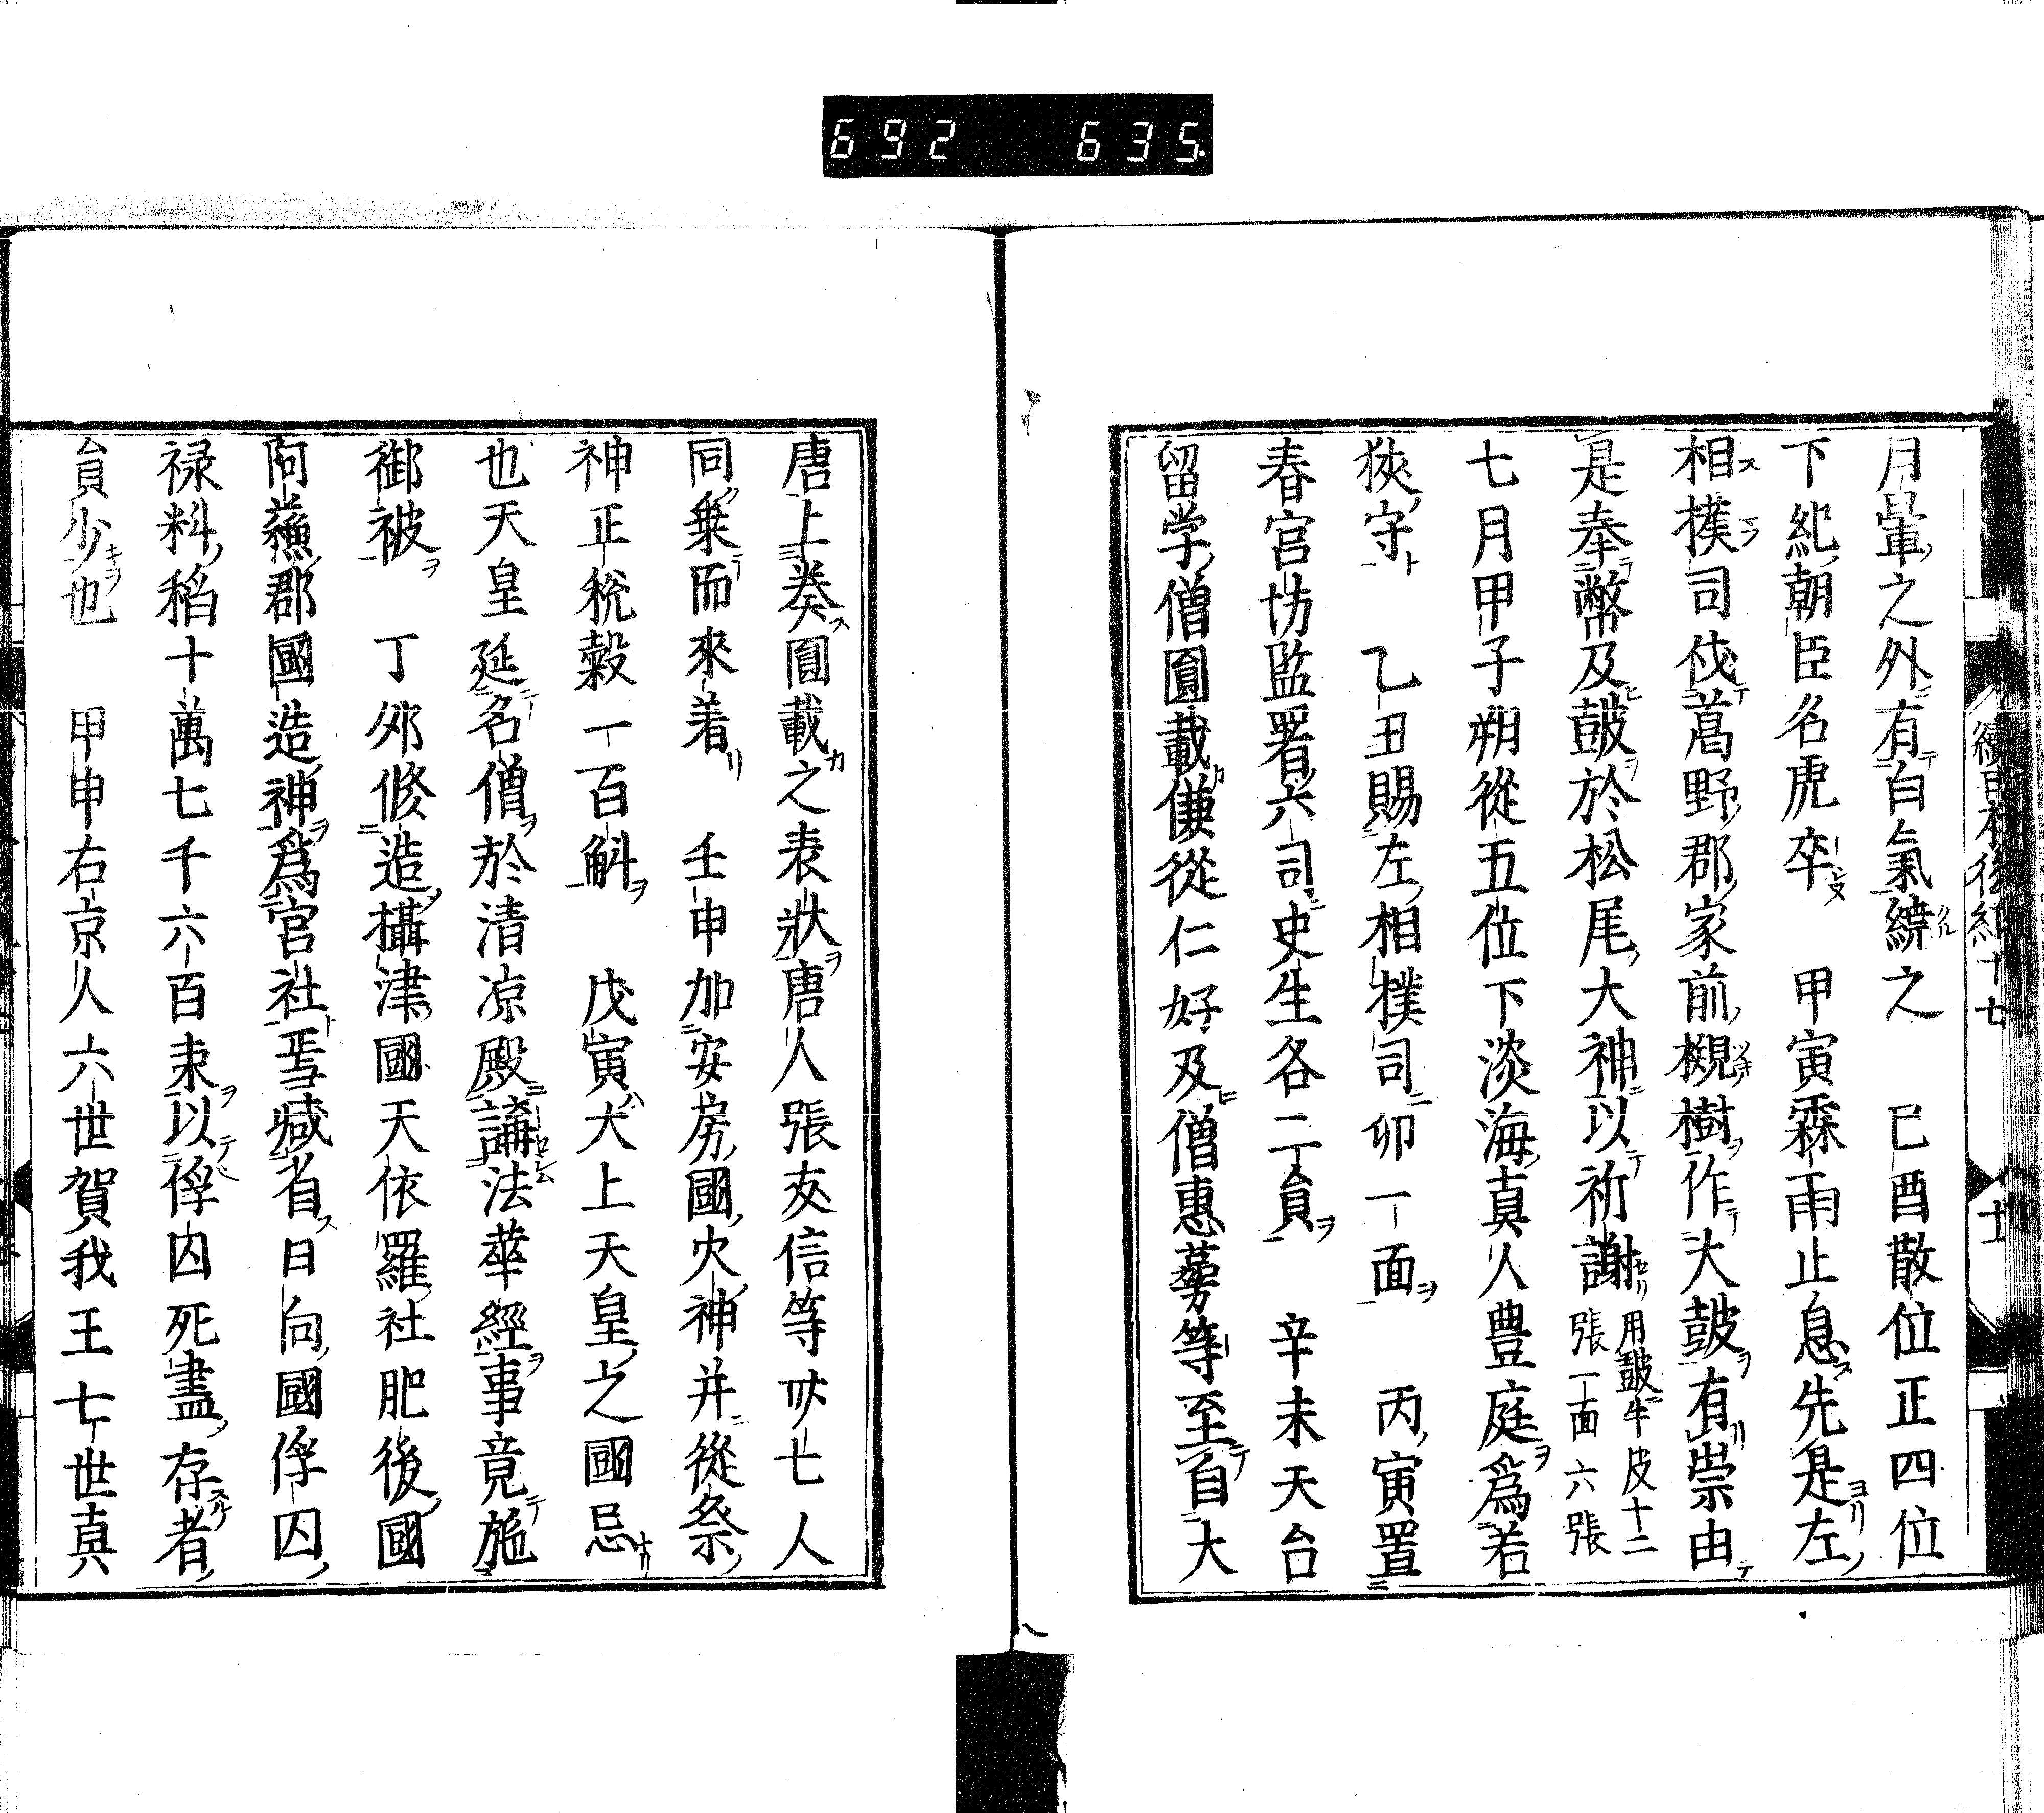 692 635
續日本後紀十七
月暈之外有白氣繞之 已酉散位正四位
下紀朝臣名虎卒 甲寅霖雨止息先是左
相撲司伐葛野郡家前槻樹作大皷有崇由
是奉幣及皷於松尾大神以祈謝 用皷牛皮十二張一面六張
七月甲子朔從五位下淡海真人豊庭爲若
狹守 乙丑賜左相撲司卯一面 丙寅置
春宮坊監署六司史生各二負 辛未天台
留学僧圓載傔從仁好及僧惠蕚等至自大
唐上奏圓載之表狀唐人張友信等卌七人
同乗而來着 壬申加安房國火神并從祭
神正税穀一百斛 戊寅犬上天皇之國忌
也天皇延名僧於清凉殿論法華經事竟施
御被 丁夘修造攝津國天依羅社肥後國
阿蘓郡國造神爲官社焉 减省日向國俘囚
禄料稻十萬七千六百束以俘囚死盡存者
負少也 甲申右京人六世賀我王七世真